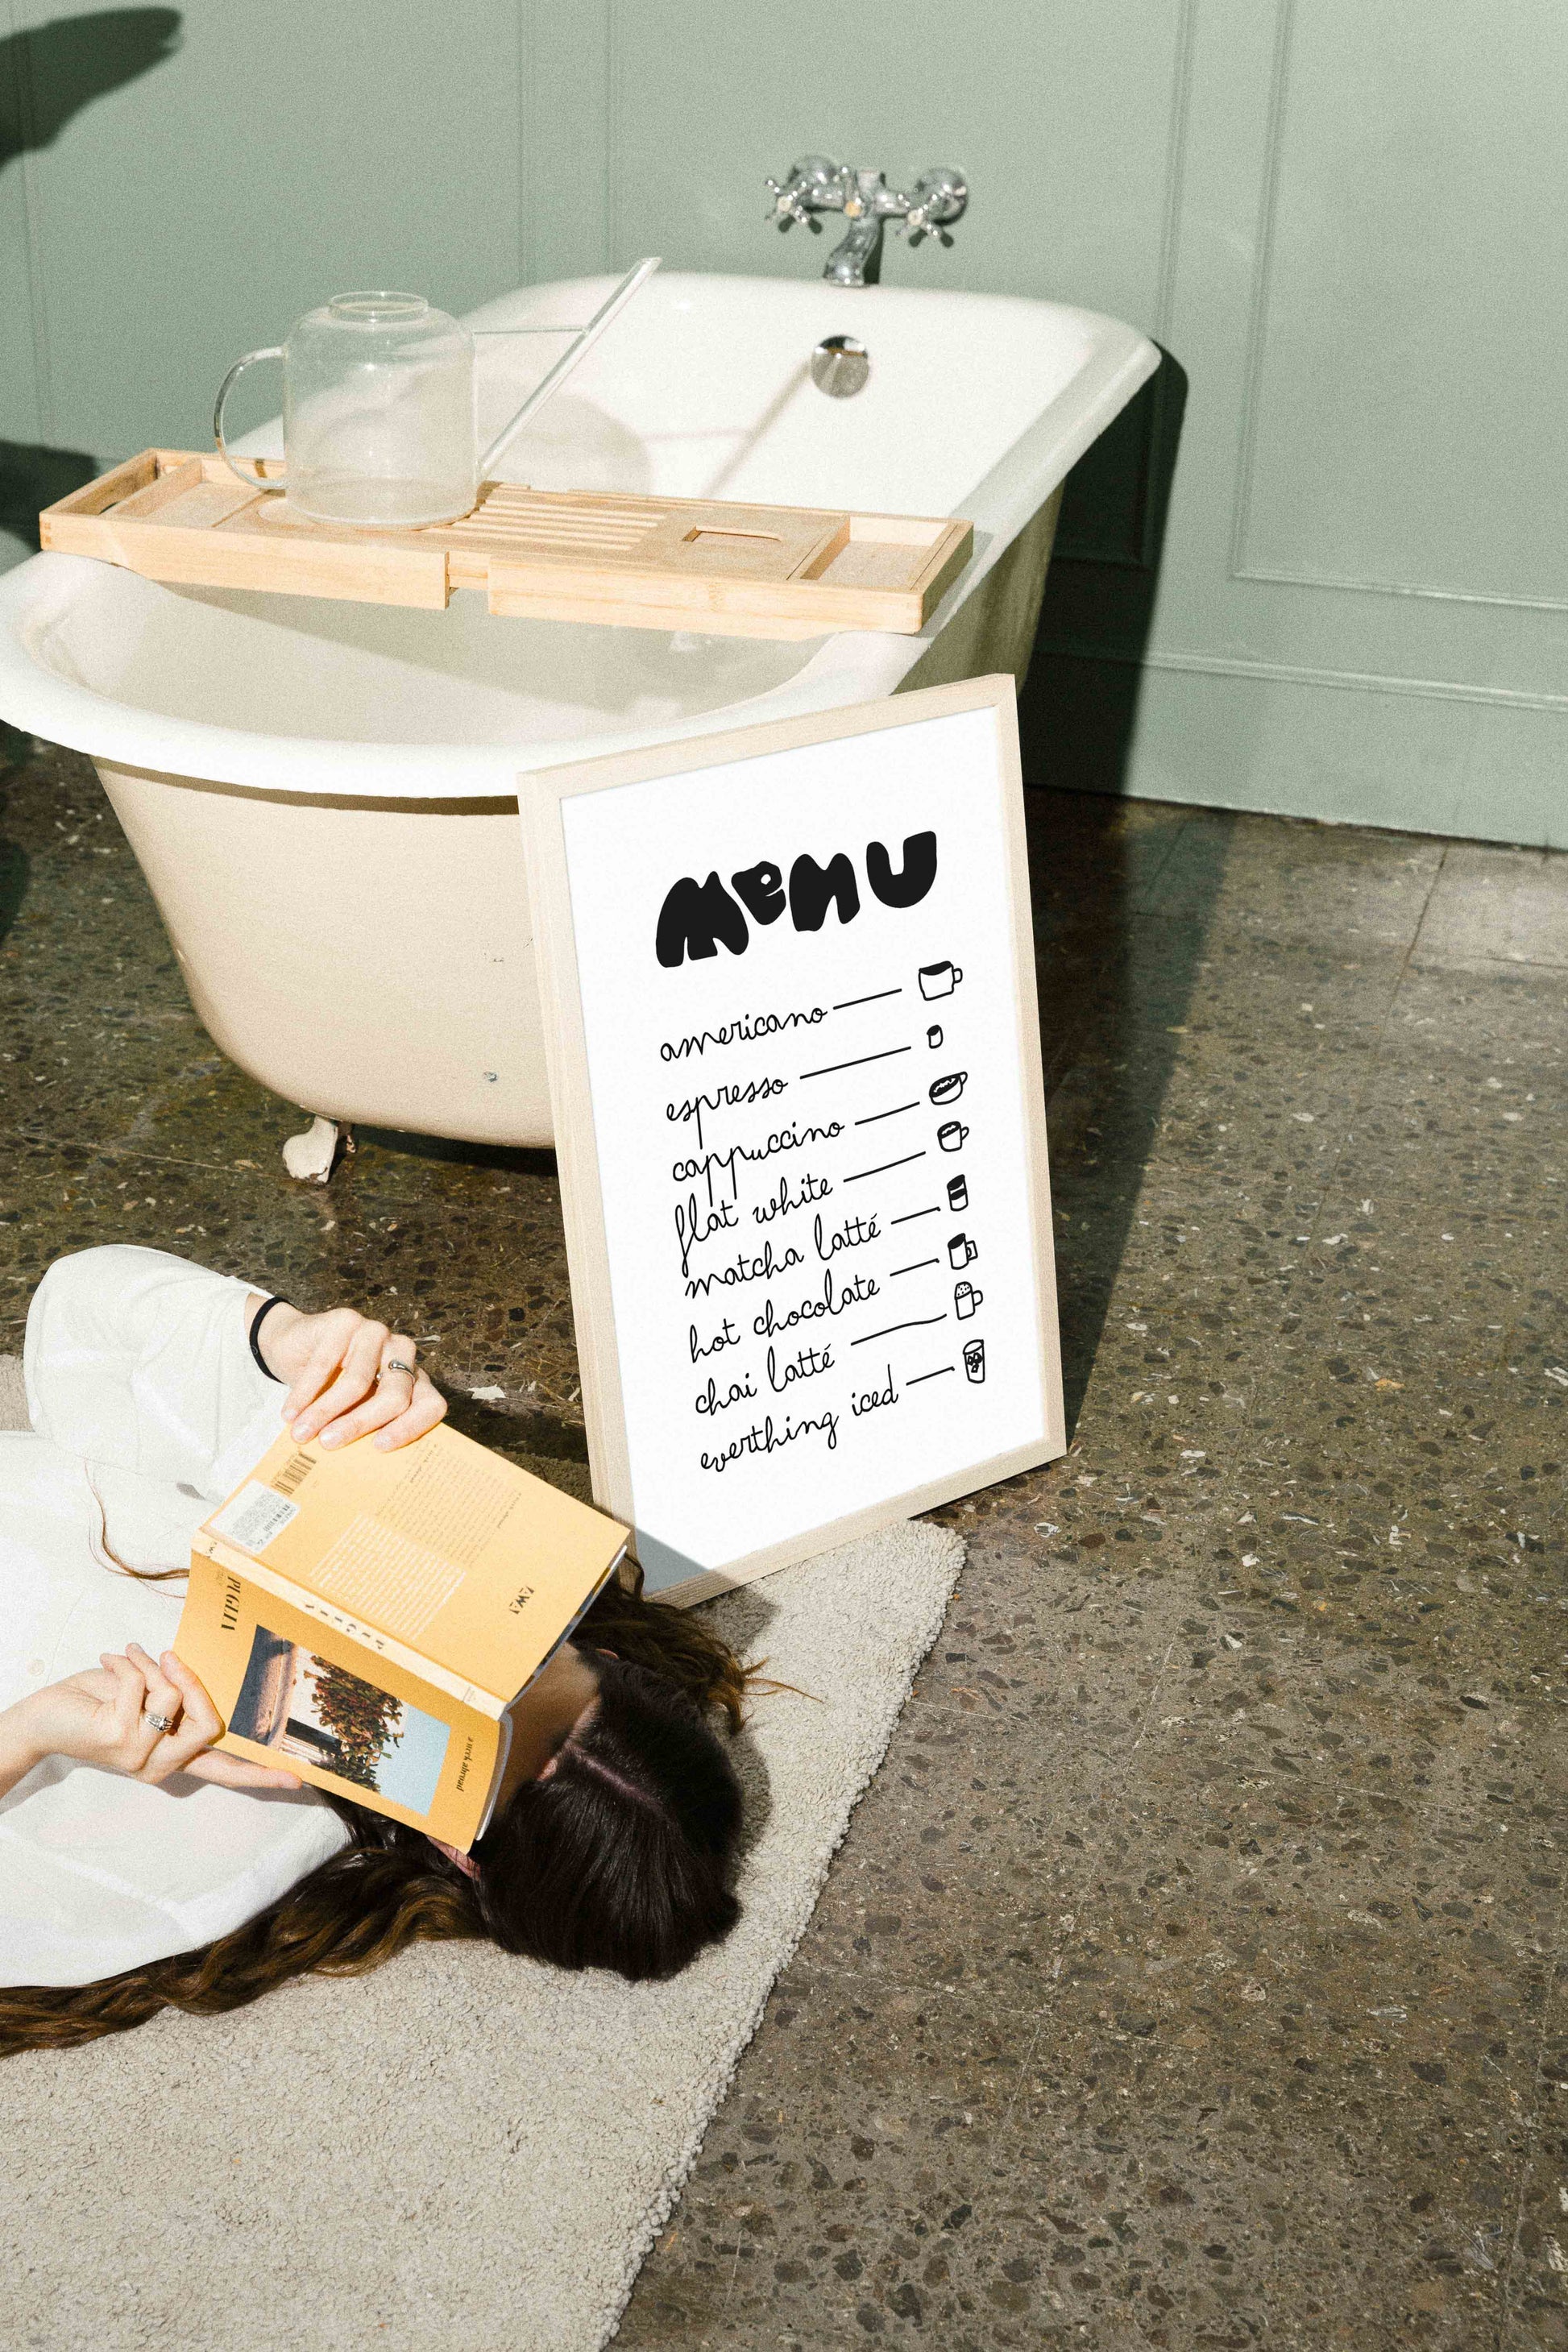 MeNU
americano
espresso
cappuccino
flat white
matcha latté
hot chocolate
chai latté
everthing iced
PUGLIA
PUGLIA
a week abroad